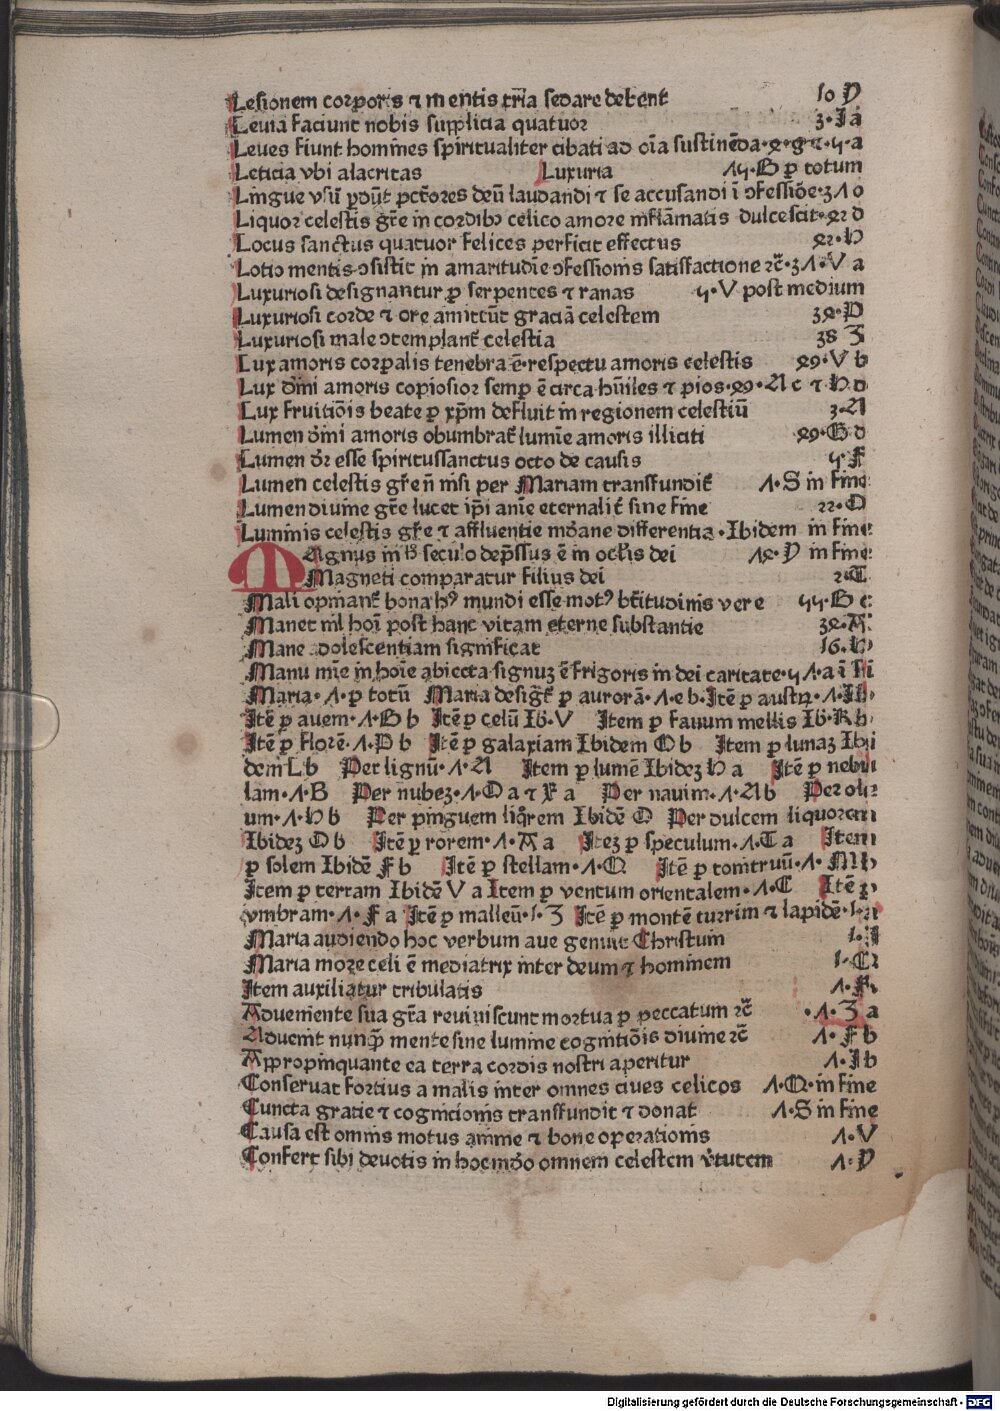 Lesionem corporis ⁊ mentis tr̄ia sedare debent 10 Y
Leuia faciunt nobis supplicia quatuor 3·I a
Leues fiunt homines spiritualiter cibati ad oīa sustinēda·
Leticia vbi alacritas Luxuria 14·B ꝑ totum
Lingue vsū ꝑdūt pctōres deū laudandi ⁊ se accusandi ī ↄfessiōe·31 o
Liquor celestis gr̄e in cordibꝫ celico amore inflāmatis dulcescit·
Locus sanctus quatuor felices perficit effectus
Lotio mentis ↄsistit in amaritudīe ↄfessionis satisfactione ⁊c̄·31·V a
Luxuriosi designantur ꝑ serpentes ⁊ ranas 4·V post medium
Luxuriosi corde ⁊ ore amittūt graciā celestem 38·P
Luxuriosi male ↄtemplant᷑ celestia 38 Z
Lux amoris corꝑalis tenebra ē·respectu amoris celestis 29·V b
Lux dīni amoris copiosior semꝑ ē circa hūiles ⁊ pios·29·A c ⁊ H d
Lux fruitiōis beate ꝑ xp̄m defluit in regionem celestiū 3·A
Lumen dīni amoris obumbrat᷑ lumīe amoris illiciti 29·G d
Lumen dr̄ esse spiritussanctus octo de causis 4 F
Lumen celestis gr̄e nō nisi per Mariam transfundit᷑ 1·S in fine
Lumen diuine gr̄e lucet ip̄i anīe eternalit᷑ sine fine 22·O
Luminis celestis gr̄e ⁊ affluentie mūdane differentia·Ibidem in fine
Magnus in hͦ seculo dep̄ssus ē in ocl̄is dei 18·Y in fine
Magneti comparatur filius dei 2·C
Mali opinant᷑ bona hꝰ mundi esse motꝰ bt̄itudinis vere 44·B c
Manet nl̄ hoī post hanc vitam eterne substantie 38·A
Mane adolescentiam significat 16·H
Manu mīe in hoīe abiecta signuꝫ ē frigoris in dei caritate·4·1·a ī fi
Maria·1·ꝑ totū Maria desigt᷑ ꝑ aurorā·1·e b·Itē ꝑ austꝝ·1·Ib
Itē ꝑ auem·1·B b Itē ꝑ celū Ib·V Item ꝑ fauum mellis Ib·R b
Itē ꝑ florē·1·P b Itē ꝑ galaxiam Ibidem O b Item ꝑ lunaꝫ Ibi
dem L b Per lignū·1·A Item ꝑ lumē Ibideꝫ H a Itē ꝑ nebu
lam·1·B Per nubeꝫ·1·O a ⁊ X a Per nauim·1·A b Per ole
um·1·H b Per pinguem liq̄rem Ibidē O Per dulcem liquorem
Ibideꝫ O b Itē ꝑ rorem·1·A a Iteꝫ ꝑ speculum·1·T a Item
ꝑ solem Ibidē F b Itē ꝑ stellam·1·Q Itē ꝑ tonitruū·1·M b
Item ꝑ terram Ibidē V a Item ꝑ ventum orientalem·1·C Itē ꝑ
vmbram·1·F a Itē ꝑ malleū·1·Z Itē ꝑ montē turrim ⁊ lapidē·
Maria audiendo hoc verbum aue genuit Christum
Maria more celi ē mediatrix inter deum ⁊ hominem
Item auxiliatur tribulatis 1·
Adueniente sua gr̄a reuiuiscunt mortua ꝑ peccatum ⁊c̄ ·1·Z a
Aduenit nunꝙ̄ mente sine lumine cognitiōis diuine ⁊c̄ 1·F b
Appropinquante ea terra cordis nostri aperitur 1·I b
Conseruat fortius a malis inter omnes ciues celicos 1·Q·in fine
Cuncta gratie ⁊ cognicionis transfundit ⁊ donat 1·S in fine
Causa est omnis motus anime ⁊ bone operationis 1·V
Confert sibi deuotis in hoc mūdo omnem celestem v̄tutem 1·Y
Digitalisierung gefördert durch die Deutsche Forschungsgemeinschaft - DFG